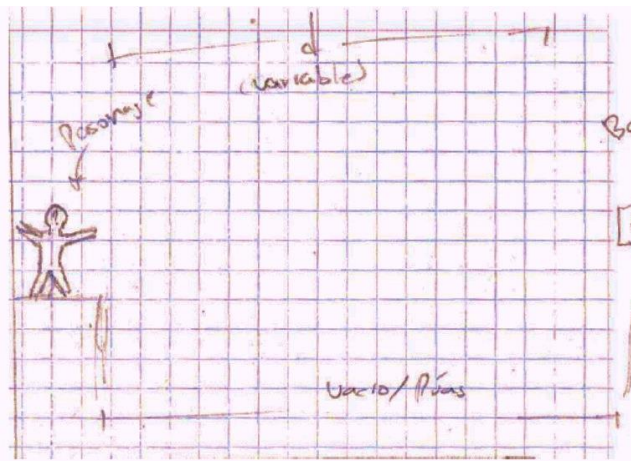 d
(variable)
Personaje
Bo
vacio/Púas